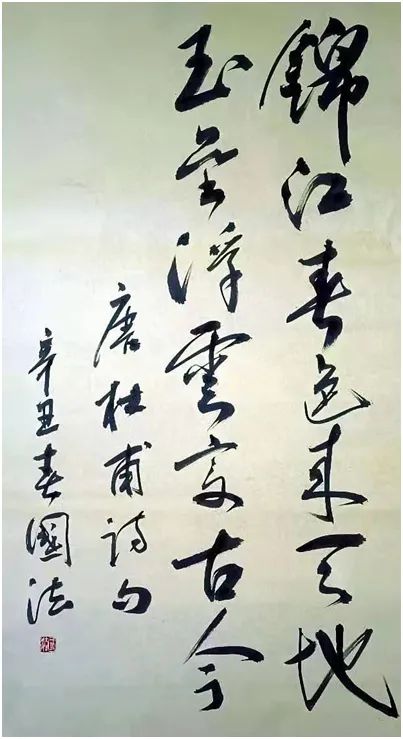 錦江春色来天地
玉壘浮雲变古今
唐杜甫詩句
辛丑春國法